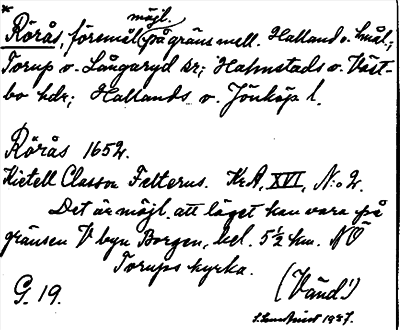 *
möjl.
Rörås, föremål på gräns mell. Halland o. Smål.;
Torup o. Långaryd sr; Halmstads o. Väst-
bo hdr; Hallands o. Jönköp l.
Rörås 1652.
Kietell Classon Felterus. KrA, XVI, N:o 2.
Det är möjl. att läget kan vara på
gränsen V byn Borgen, bel. 5½ km. NÖ
Torups kyrka.
G. 19.
(Vänd!)
1927.